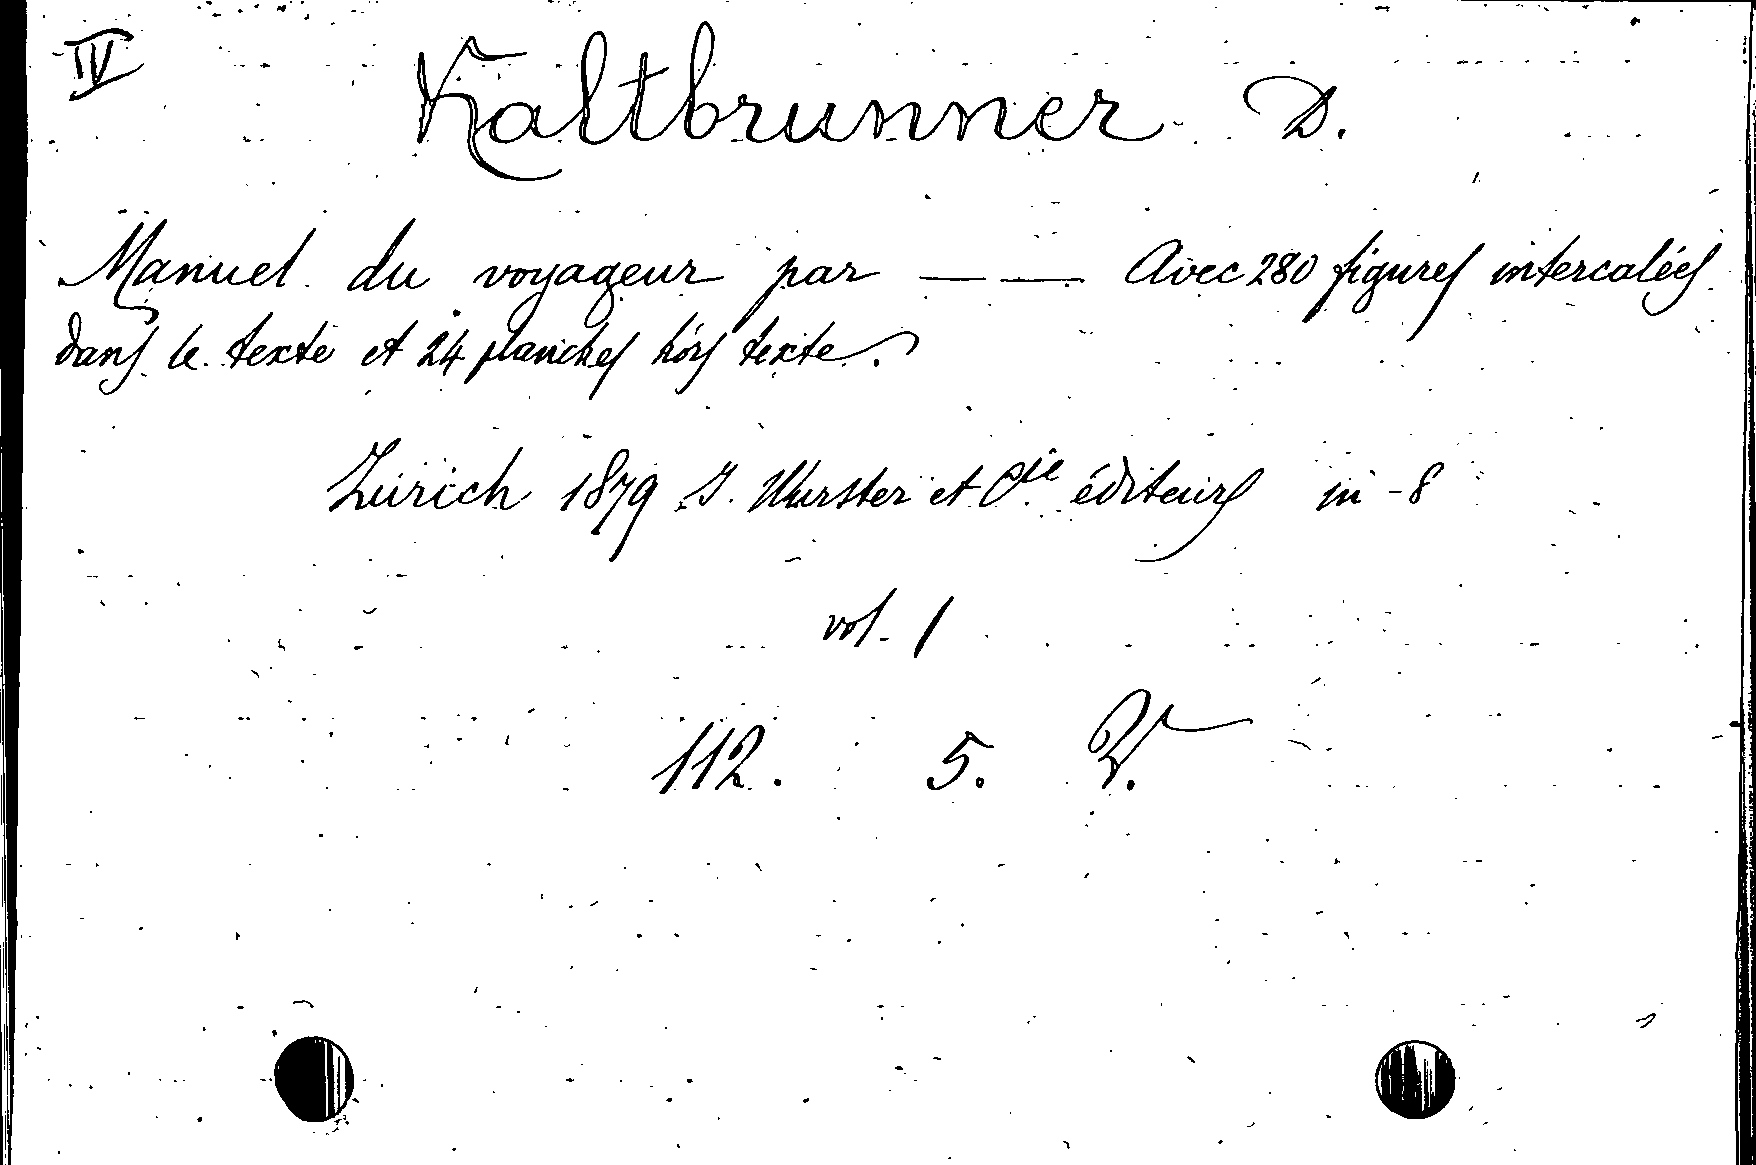 IV
Kaltbrunner D.
Manuel du voyageur par — — Avec 280 figures intercalées
dans le texte et 24 planches hors texte.
Zürich 1879 J. Wurster et Cie éditeurs in-8
vol. 1
112. 5. V.